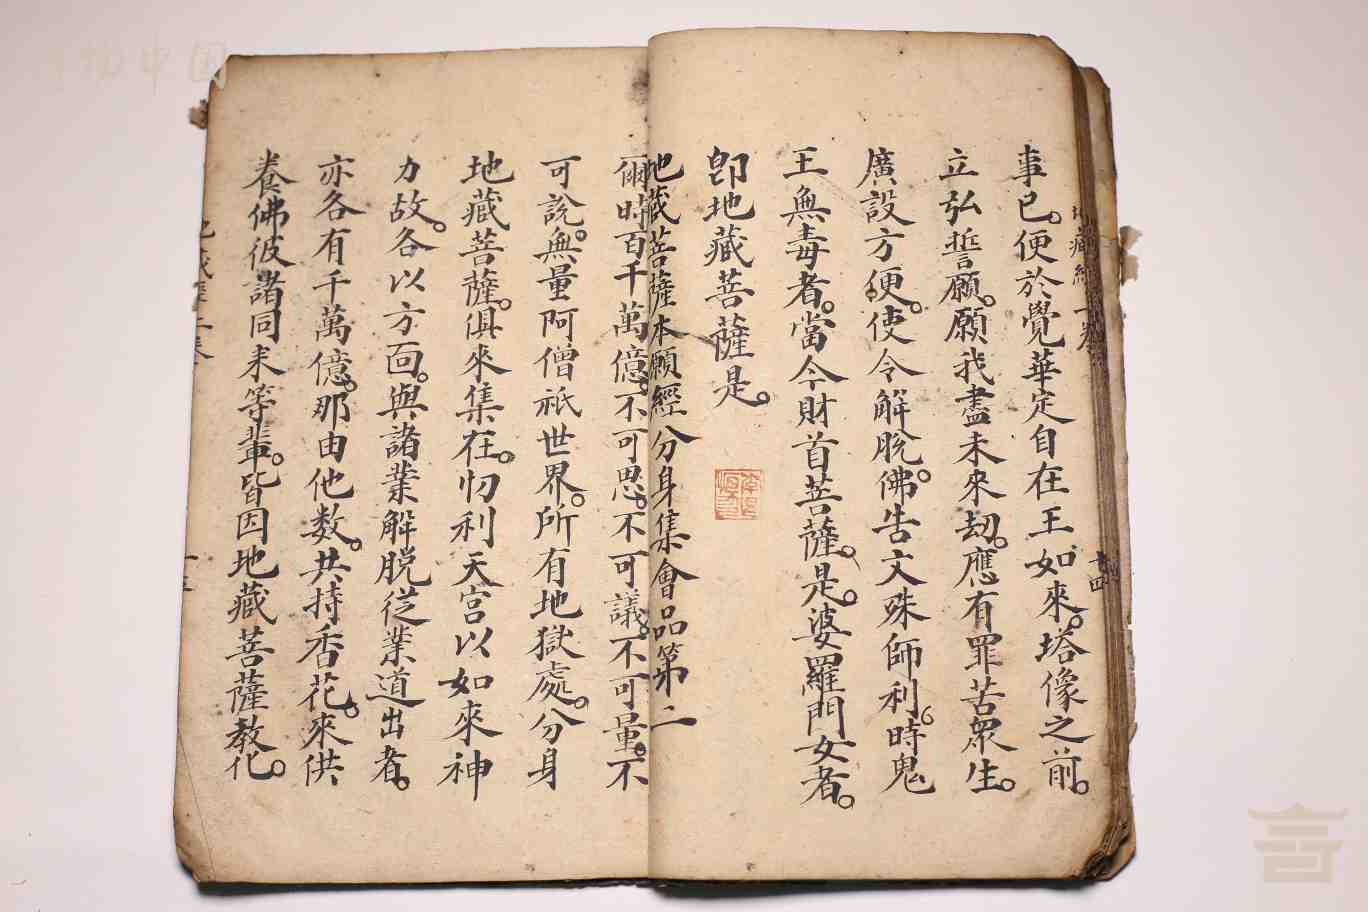 事已。便於覺華定自在王如來。塔像之前。
立弘誓願。願我盡未來劫。應有罪苦衆生。
廣設方便。使令解脫。佛告文殊師利。時鬼
王無毒者。當今財首菩薩。是。婆羅門女者。
卽地藏菩薩是。
地藏菩薩本願經分身集會品第二
爾時百千萬億。不可思。不可議。不可量。不
可說。無量阿僧祇世界。所有地獄處。分身
地藏菩薩。俱來集在。忉利天宮以如來神
力故。各以方面。與諸業解脫從業道出者。
亦各有千萬億。那由他數。共持香花。來供
養佛彼諸同来等輩。皆因地藏菩薩教化。